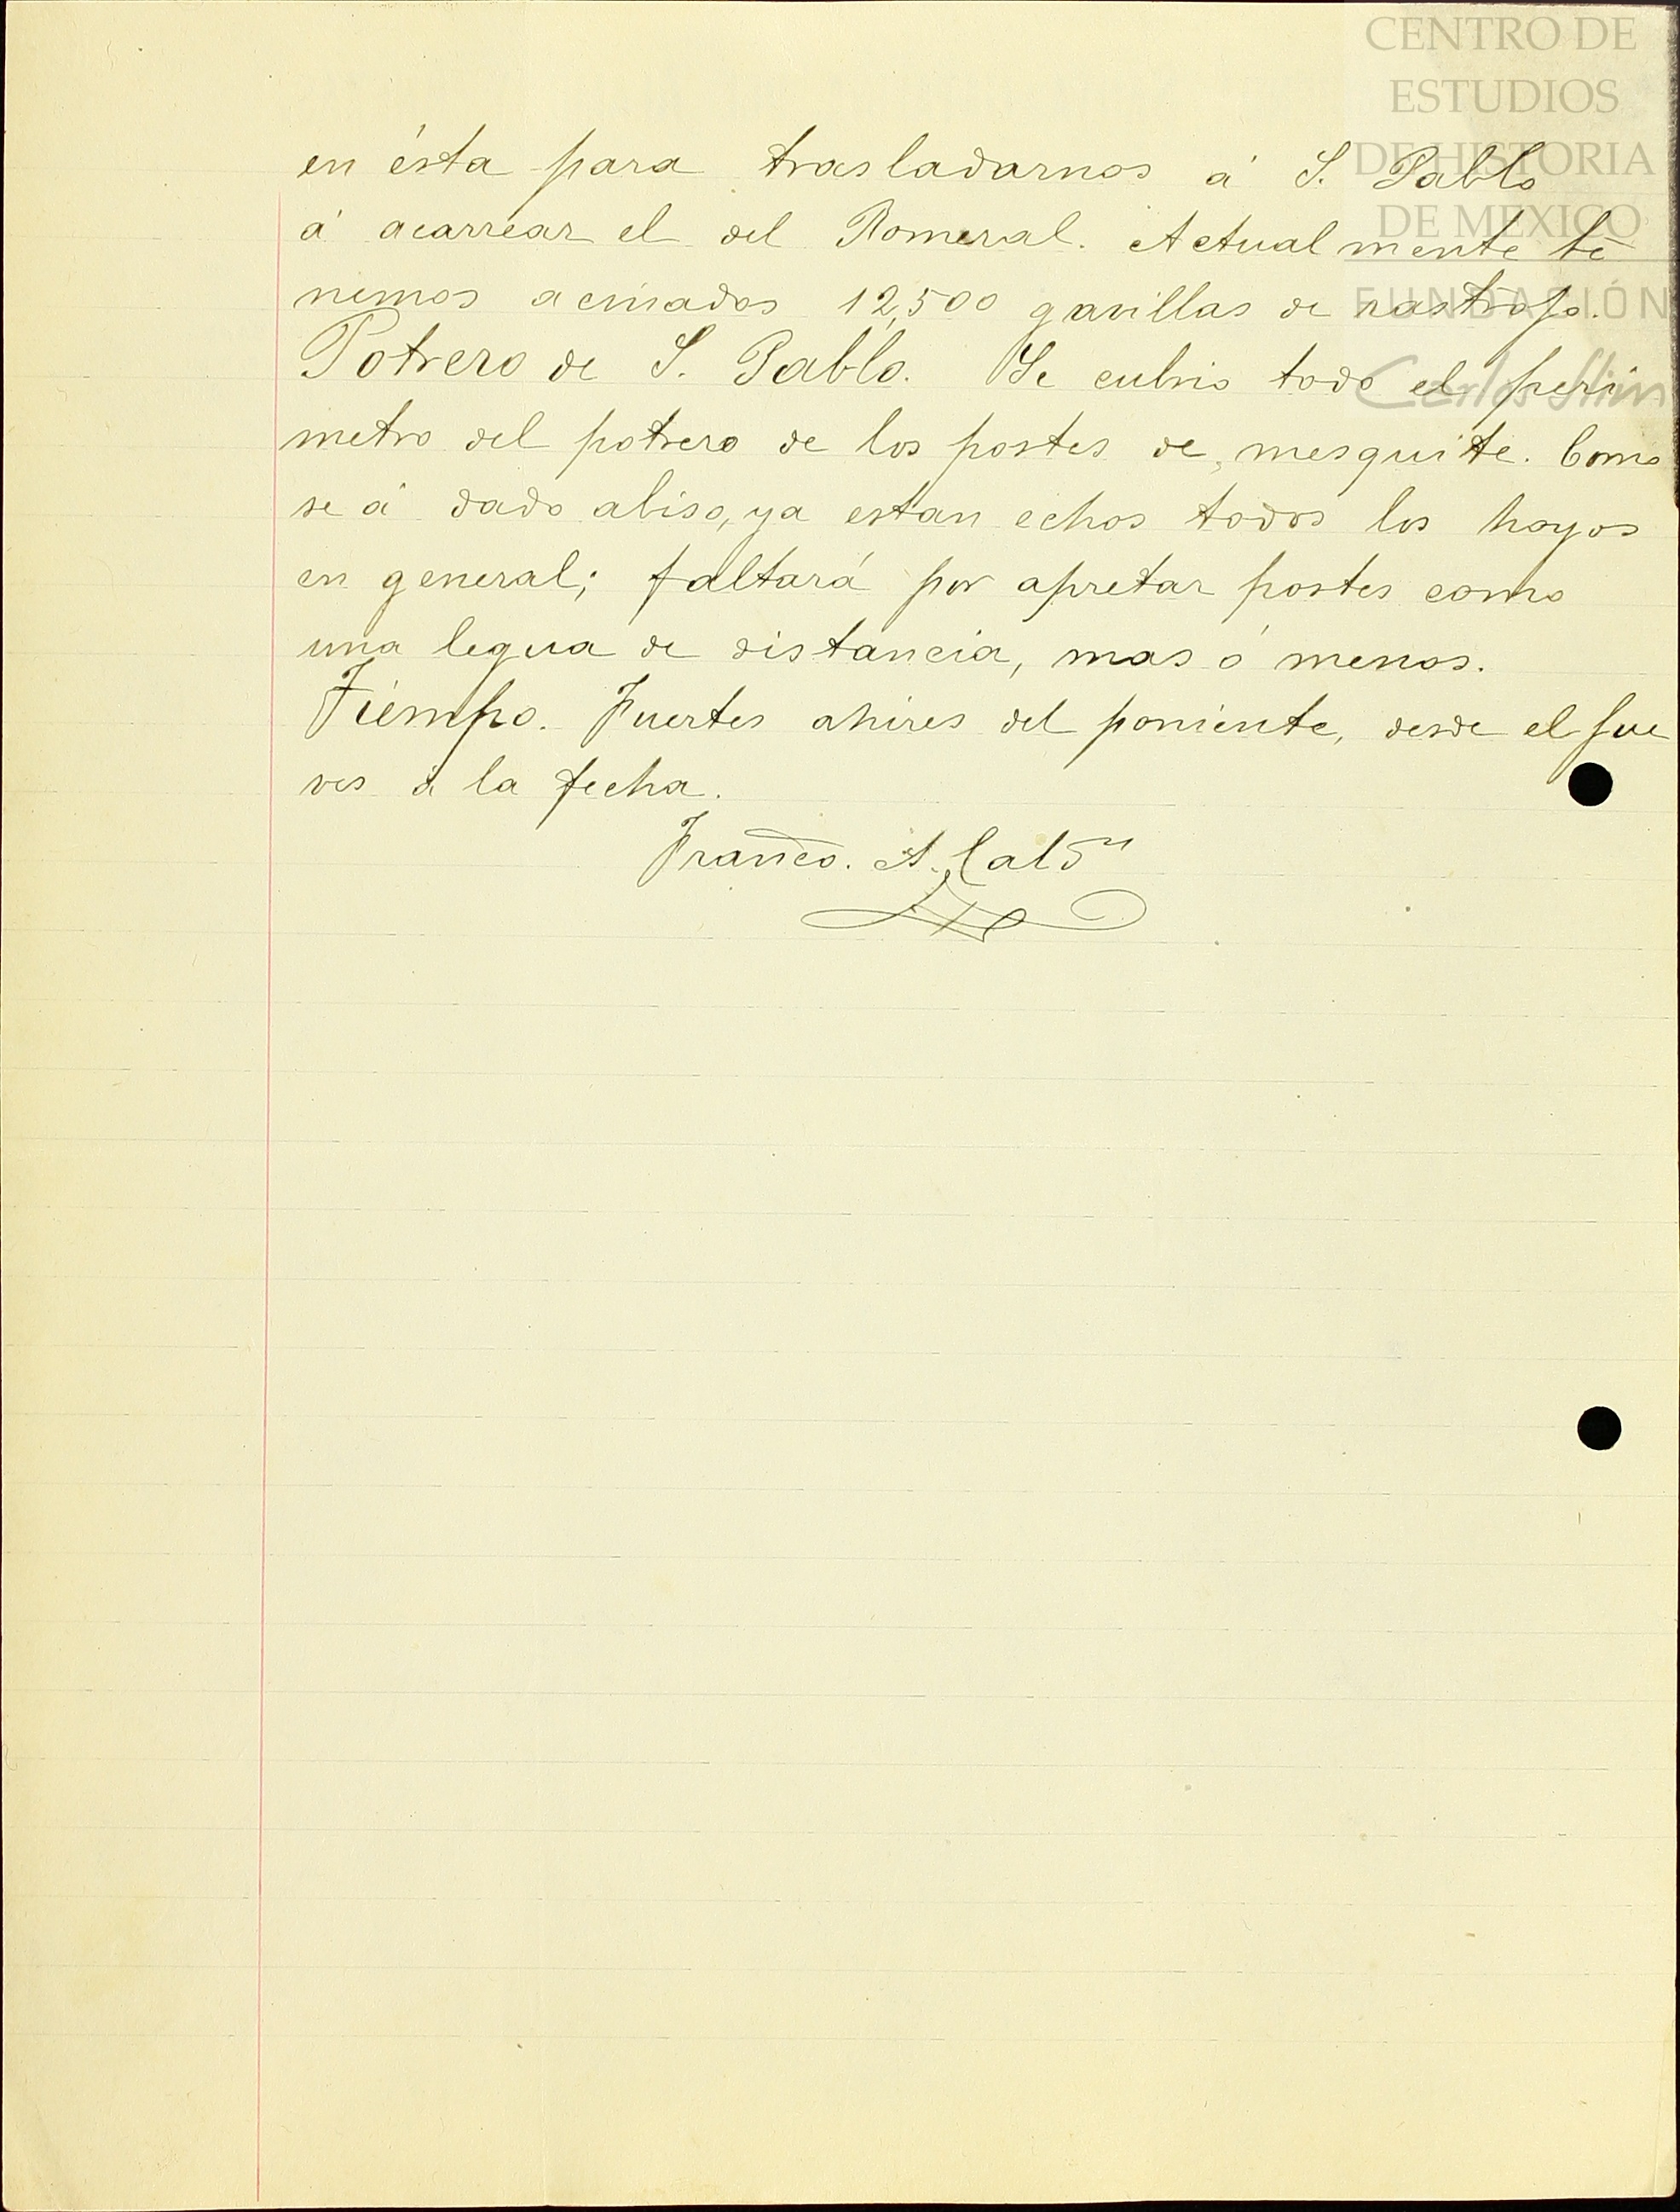 CENTRO DE
ESTUDIOS
DE HISTORIA
DE MEXICO
FUNDACIÓN
Carlos Slim
en ésta para trasladarnos á S. Pablo
á acarrear el del Romeral. Actualmente te
nemos acinados 12,500 gavillas de rastrojo.
Potrero de S. Pablo. Se cubrio todo el peri
metro del potrero de los postes de mesquite. Como
se á dado abiso, ya estan echos todos los hoyos
en general; faltará por apretar postes como
una legua de distancia, mas ó menos.
Tiempo. Fuertes ahires del poniente, desde el jue
ves á la fecha.
Franco. A.